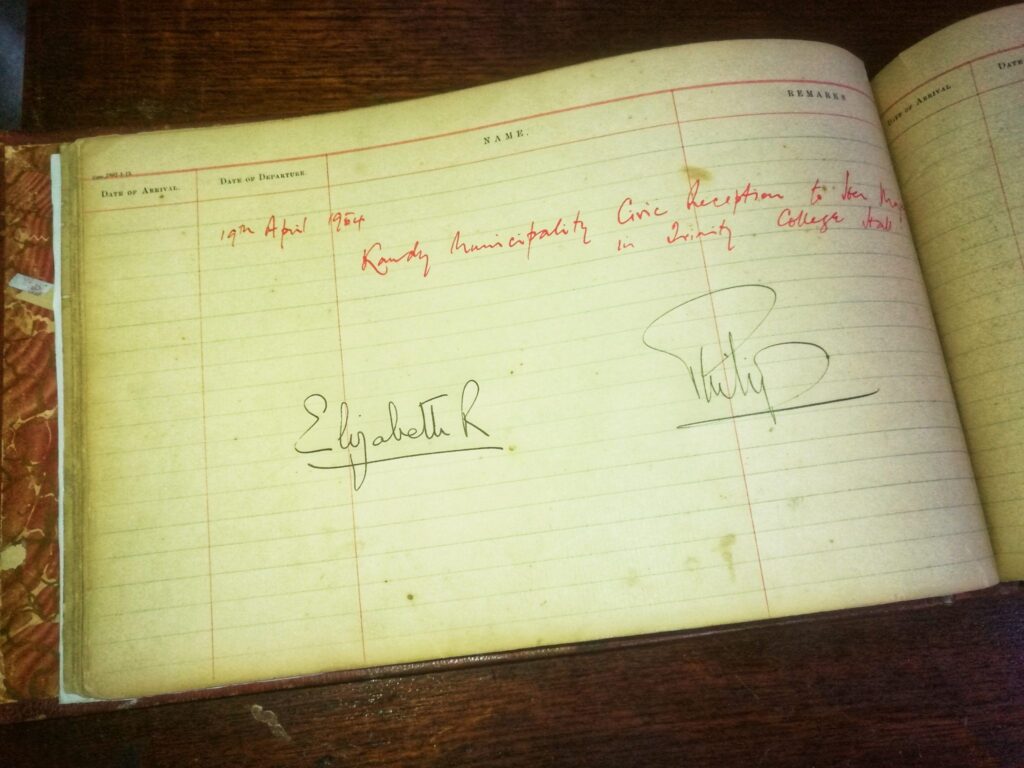 NAME.
REMARKS
DATE OF ARRIVAL.
DATE OF DEPARTURE.
19th April 1954
Kandy Municipality Civic Reception to Her
in Trinity College Hall
Elizabeth R
Philip
DATE OF ARRIVAL
DATE